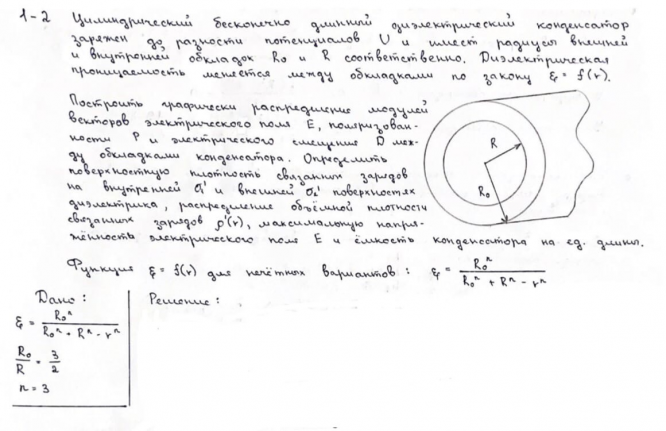 1-2 Цилиндрический бесконечно длинный диэлектрический конденсатор
заряжен до разности потенциалов U и имеет радиусы внешней
и внутренней обкладок R₀ и R соответственно. Диэлектрическая
проницаемость меняется между обкладками по закону ε = f(r).
Построить графически распределение модулей
векторов электрического поля E, поляризован-
ности P и электрического смещения D меж-
ду обкладками конденсатора. Определить
поверхностную плотность связанных зарядов
на внутренней σ₁' и внешней σ₂' поверхностях
диэлектрика, распределение объёмной плотности
связанных зарядов ρ'(r), максимальную напря-
жённость электрического поля E и ёмкость конденсатора на ед. длины.
R
R₀
Функция ε = f(r) для нечётных вариантов: ε = R₀ⁿ / (R₀ⁿ + Rⁿ - rⁿ)
Дано:
ε = R₀ⁿ / (R₀ⁿ + Rⁿ - rⁿ)
R₀/R = 3/2
n = 3
Решение: